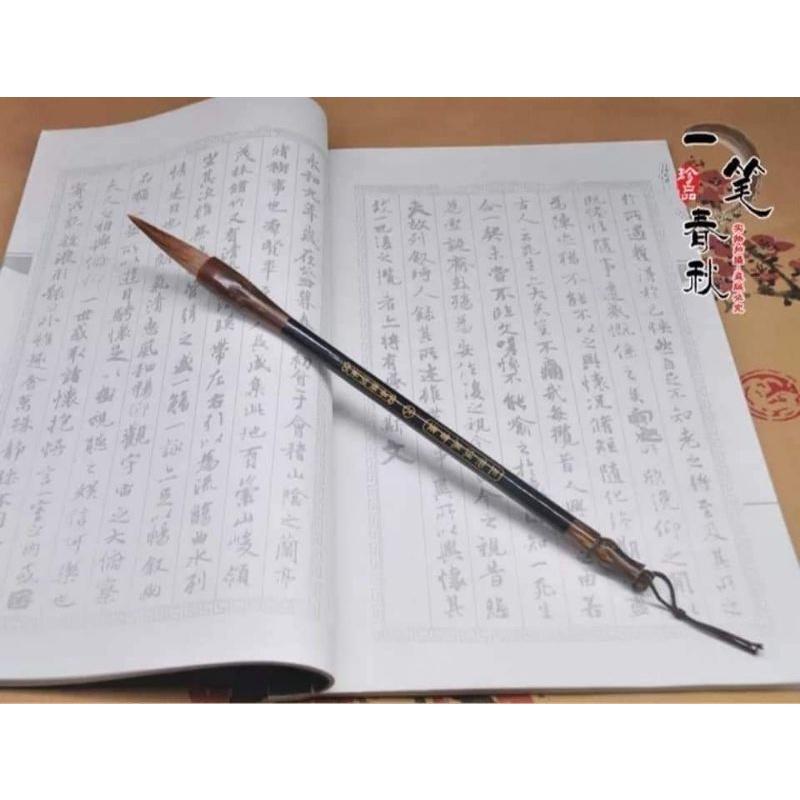 一笔
春秋
珍品
实物拍摄 盗版必究
於所遇蹔得於己快然自足不知老之將至及其所之
既惓情隨事遷感慨係之矣向之所欣俛仰之閒
為陳迹猶不能不以之興懷況脩短隨化終期盡
古人云死生亦大矣豈不痛哉每攬昔人興由若
合一契未嘗不臨文嗟悼不能喻之於知一死生
為虛誕齊彭殤為妄作後之視今之視昔悲
夫故列叙時人錄其所述雖世異所以興懷其
致一也後之攬者亦將有感斯文
永和九年歲在暮會于會稽山陰之蘭亭
脩禊事也群賢畢咸集此地有崇山峻領
茂林脩竹又有清暎帶左右引以為流觴曲水列
坐其次雖無管弦之盛一觴一詠亦足以暢叙幽
情是日也氣清惠風和暢仰觀宇宙之大俯察
品類之所以遊目騁懷足極視聽之娛信可樂也
夫人之相與俯仰一世或取諸懷抱悟言一室之內或
寄所託放浪形骸之外雖趣舍萬殊靜躁不同